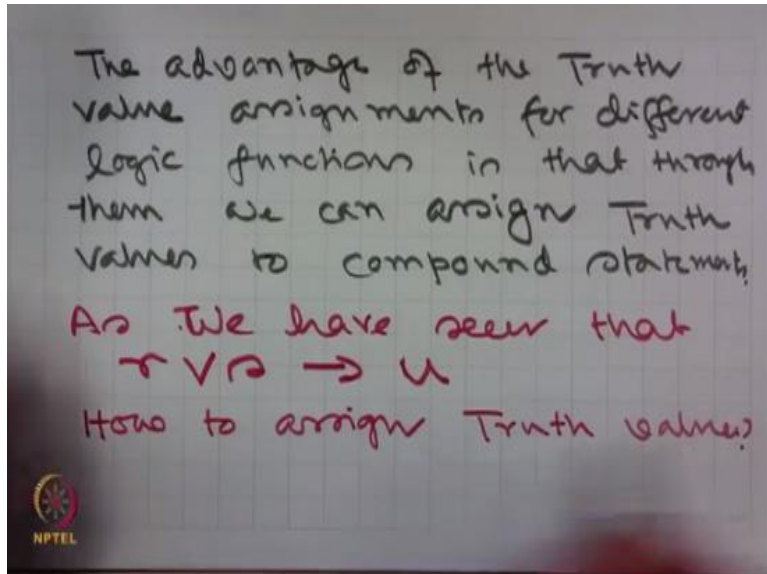 The advantage of the Truth
value assignments for different
logic functions is that through
them we can assign Truth
values to compound statements.
As We have seen that
r ∨ s → u
How to assign Truth values?
NPTEL